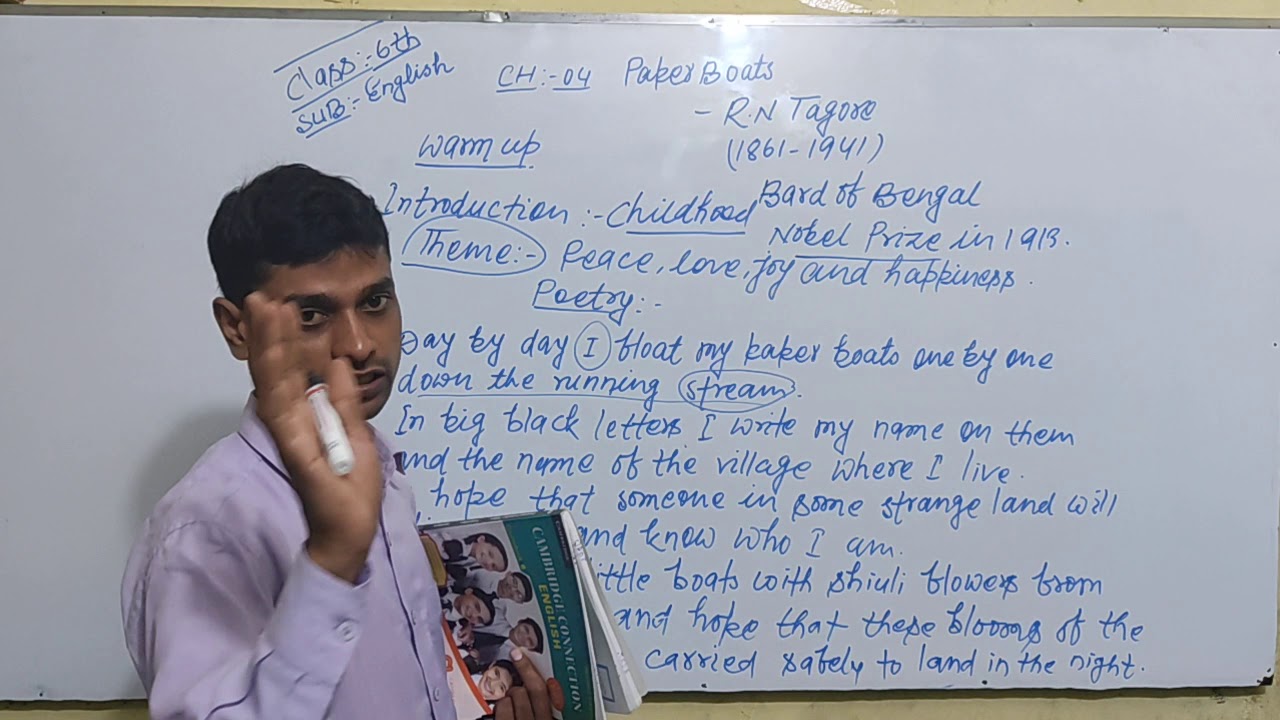 Class:- 6th
SUB:- English
CH:- 04 Paper Boats
- R.N Tagore
(1861-1941)
Warm up
Introduction :- Childhood
Bard of Bengal
Nobel Prize in 1913.
Theme:- Peace, love, joy and happiness.
Poetry:-
Day by day I float my paper boats one by one
down the running stream.
In big black letters I write my name on them
and the name of the village where I live.
hope that someone in some strange land will
and know who I am.
little boats with shiuli flowers from
and hope that these blooms of the
carried safely to land in the night.
CAMBRIDGE CONNECTION
ENGLISH